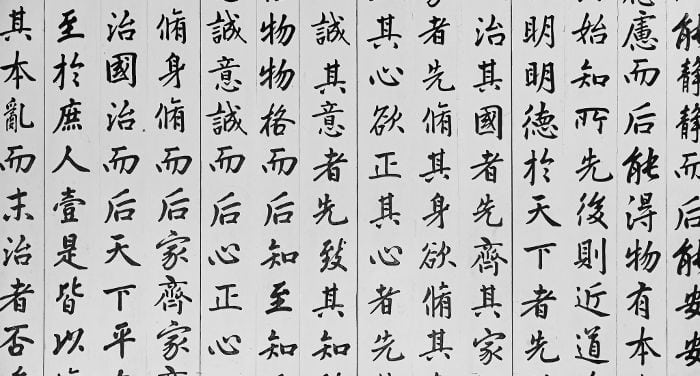 能靜靜而后能安安
慮而后能得物有本
始知所先後則近道
明明德於天下者先
治其國者先齊其家
者先脩其身欲脩其
其心欲正其心者先
誠其意者先致其知
物物格而后知至知
誠意誠而后心正心
脩身脩而后家齊家
治國治而后天下平
至於庶人壹是皆以
其本亂而末治者否